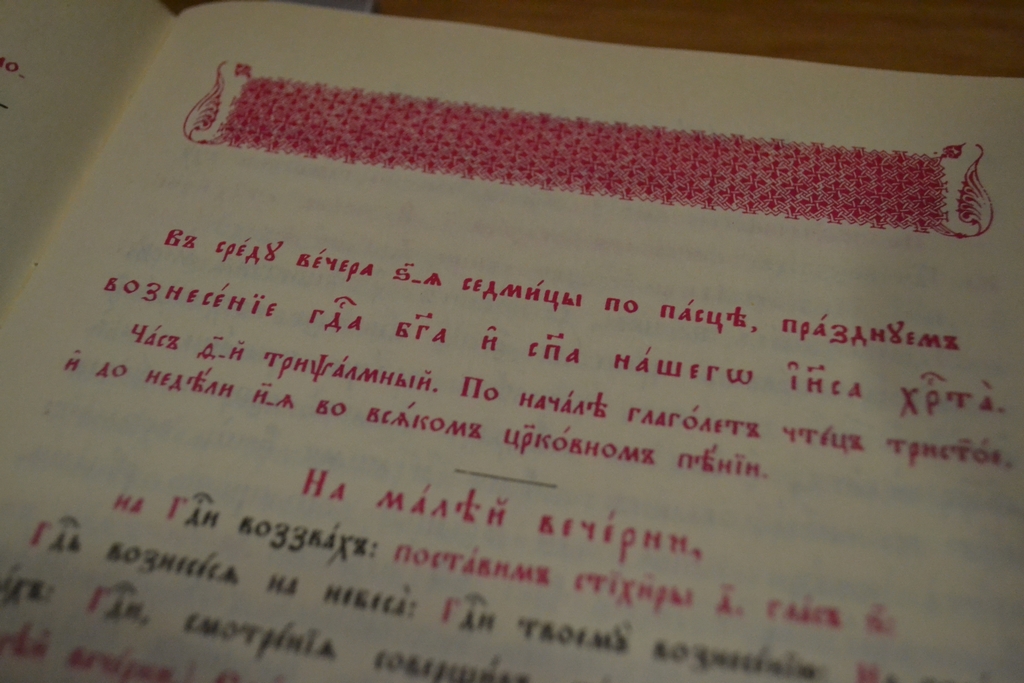 Въ сре́дꙋ ве́чера ѕ҃-ѧ седми́цы по па́сцѣ, пра́зднꙋемъ
вознесе́нїе гдⷭ҇а бг҃а и҆ сп҃са на́шегѡ і҆и҃са хрⷭ҇та̀.
Ча́съ д҃-й триѱа́лмный. По нача́лѣ глаго́летъ чте́цъ трист҃о́е.
и҆ до недѣ́ли н҃-ѧ во всѧ́комъ цр҃ко́вномъ пѣ́нїи.
На ма́лѣй вече́рни,
на Гдⷭ҇и воззва́хъ: поста́вимъ стїхи̑ры д҃. гла́съ
Гдⷭ҇ь вознесе́сѧ на небеса̀: Гдⷭ҇и твоемꙋ̀ вознесе́нїю:
Гдⷭ҇и, смотре́нїѧ
вече́рни